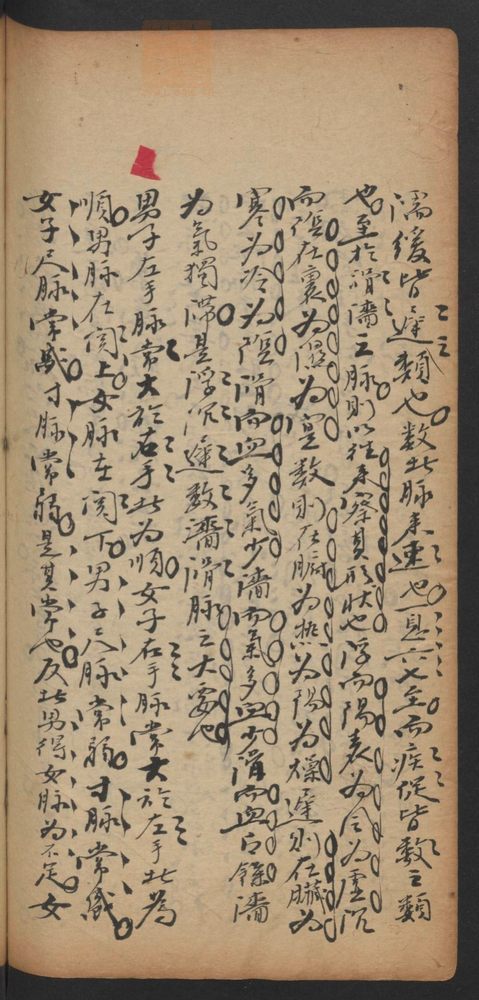 濡緩皆遲類也数者脉来速也一息六七至而疾促皆数之類
也至於滑濇之脉則以往来察其形状也浮而陽表為風為虛沉
而陰在裏為濕為實数則在腑為热為陽為燥遲則在臟為
寒為冷為陰滑而血多氣少濇而氣多血少滑而血有餘濇
为氣獨滞是浮沉遲数濇滑脉之大要也
男子左手脉常大於右手此为順女子右手脉常大於左手此為
順男脉在関上女脉在関下男子尺脉常弱寸脉常盛
女子尺脉常盛寸脉常弱是其常也反此男得女脉为不足女